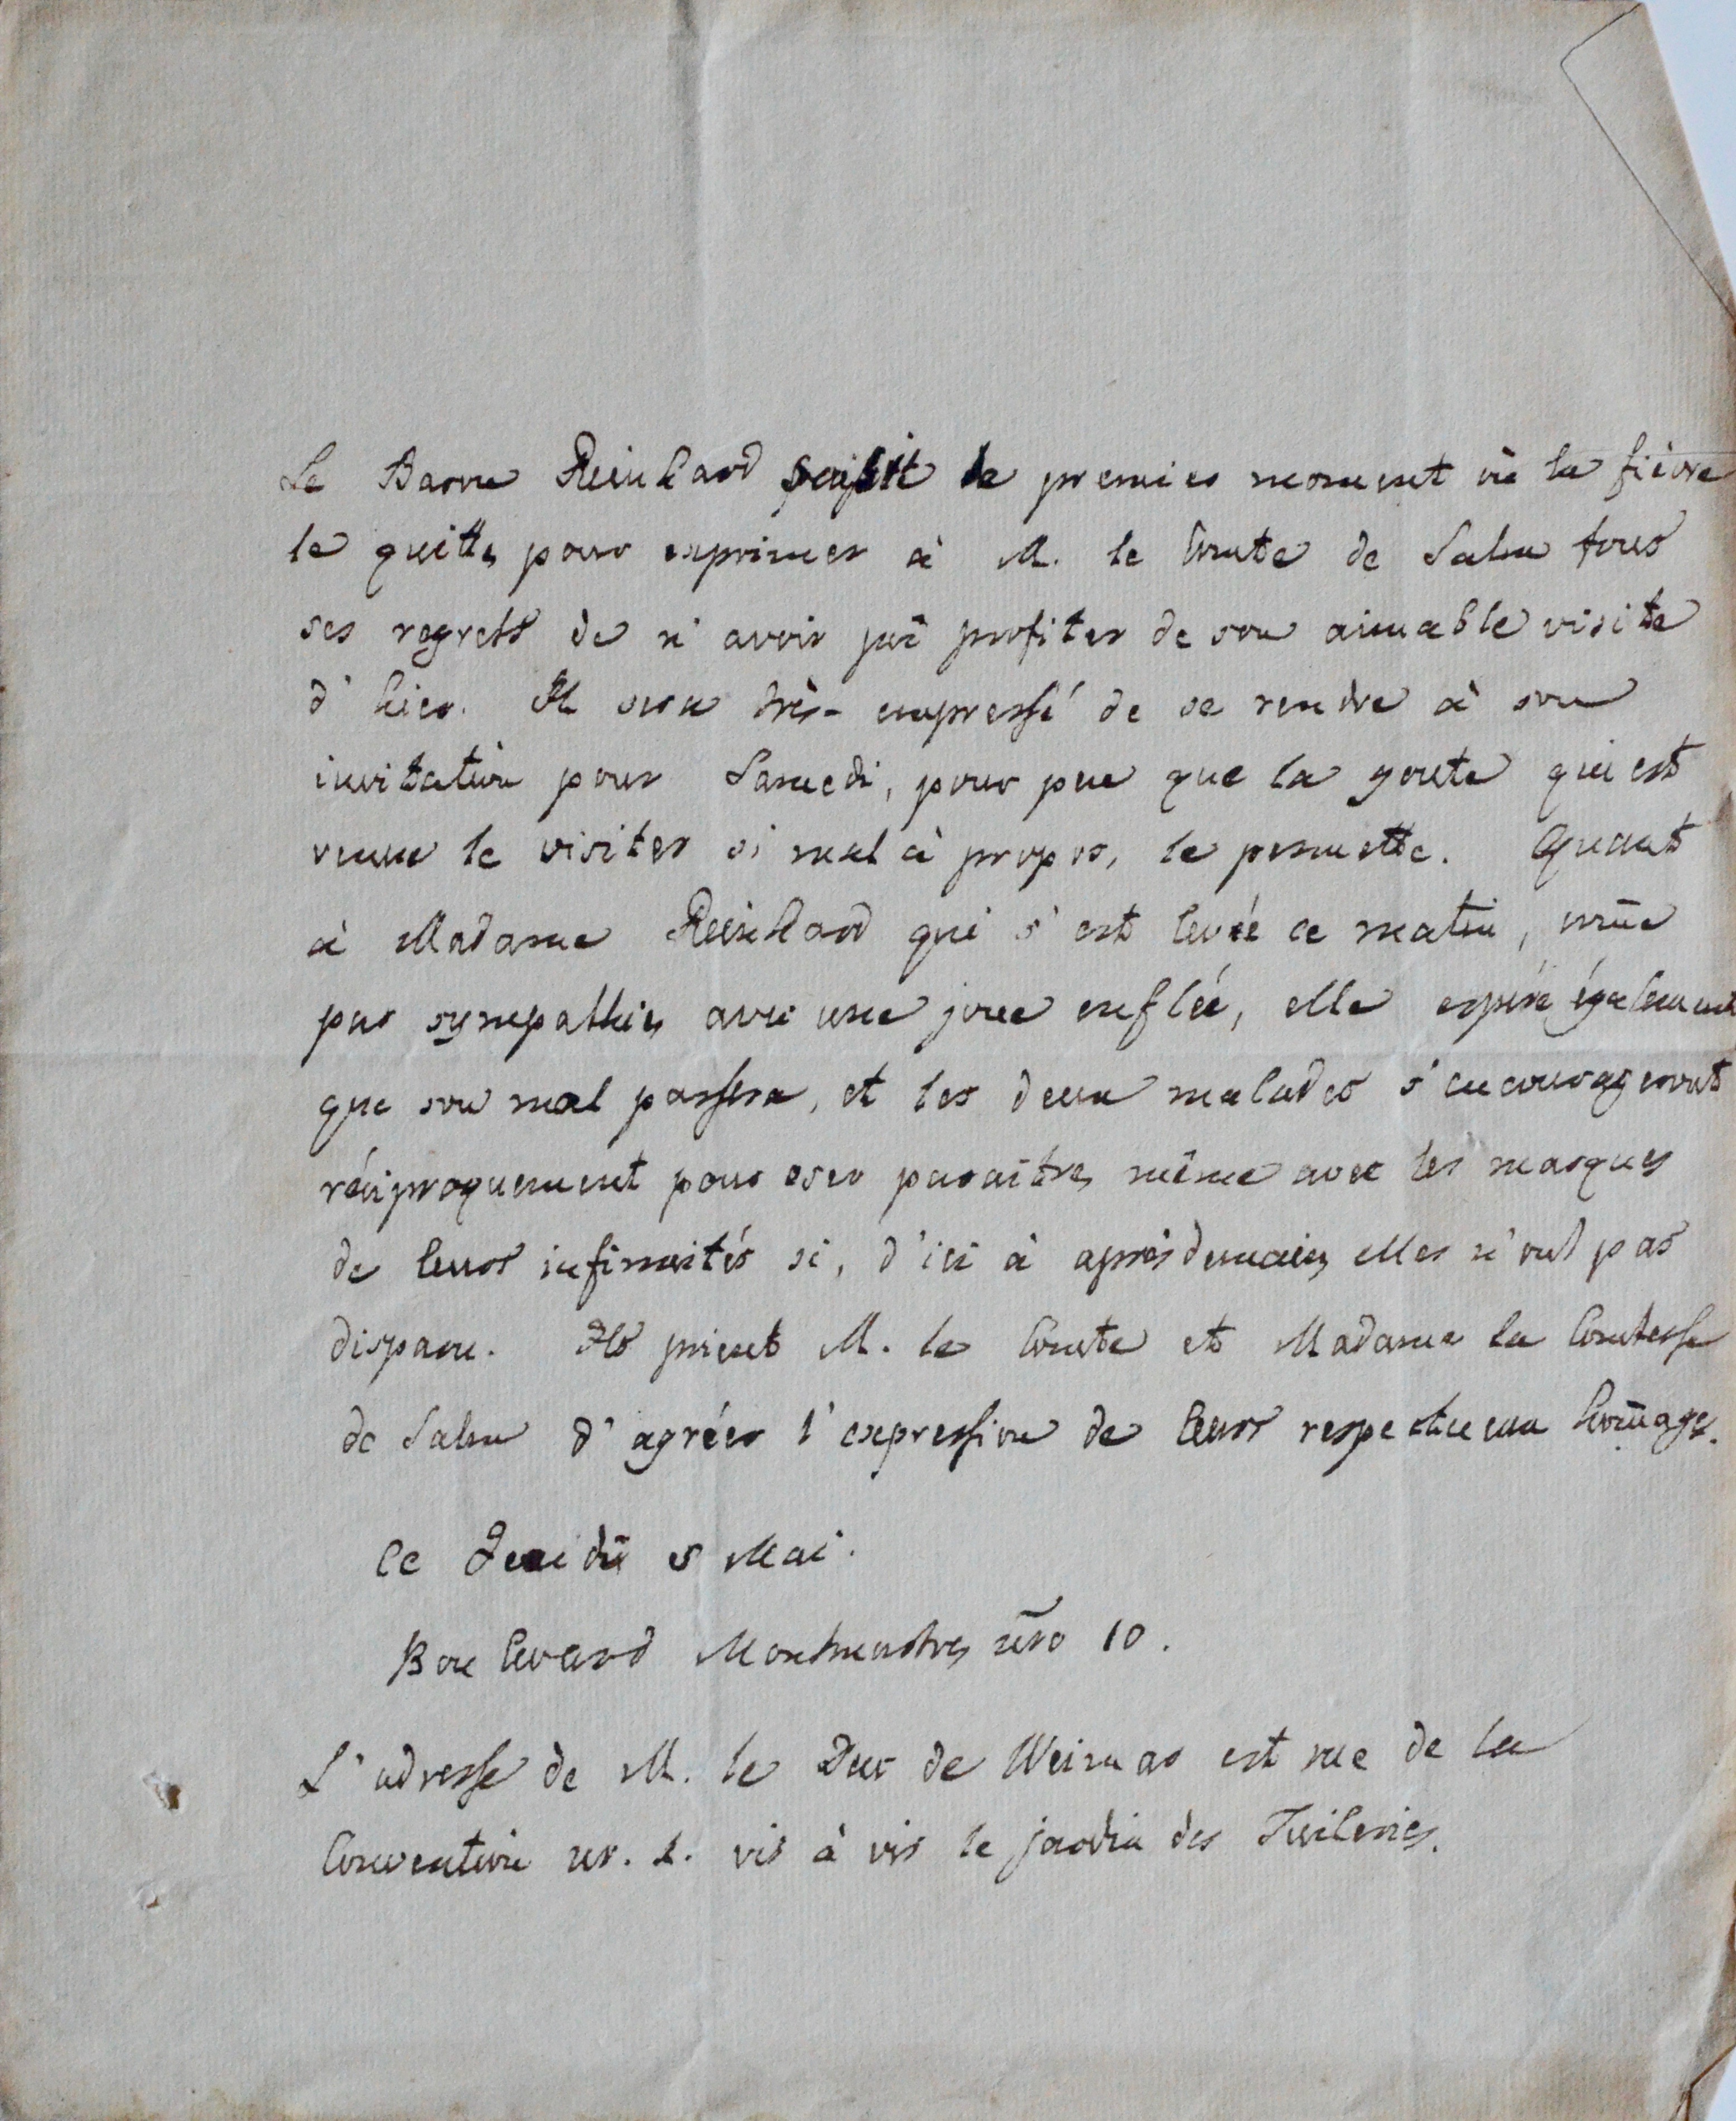 Le Baron Reinhard saisit le premier moment où la fièvre
le quitte pour exprimer à M. le Comte de Salm tous
ses regrets de n'avoir pû profiter de son aimable visite
d'hier. Il sera très-empressé de se rendre à son
invitation pour Samedi, pour peu que la goute qui est
venue le visiter si mal à propos, le permette. Quant
à Madame Reinhard qui s'est levée ce matin, come
par sympathie, avec une joue enflée, elle espère également
que son mal passera, et les deux malades s'encourageront
réciproquement pour oser paraître, même avec les masques
de leurs infirmités si, d'ici à après demain, elles n'ont pas
disparu. Ils prient M. le Comte et Madame la Comtesse
de Salm d'agréer l'expression de leurs respectueux homages.
Ce Jeudi 5 Mai.
Boulevard Montmartre, nro 10.
L'adresse de M. le Duc de Weimar est rue de la
Convention nr. 2. vis à vis le jardin des Tuileries.